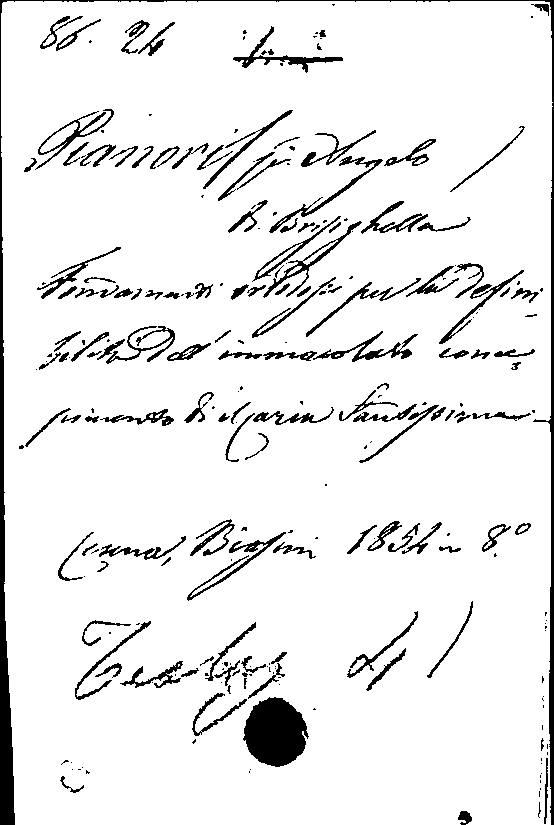 86. 24
Pianori f. Angelo
di Brisighella
Fondamenti ortodossi per la defini-
bilità dell' immacolato conce
pimento di Maria Santissima
Cesena, Biasini 1854 in 8.º
Teolog 4